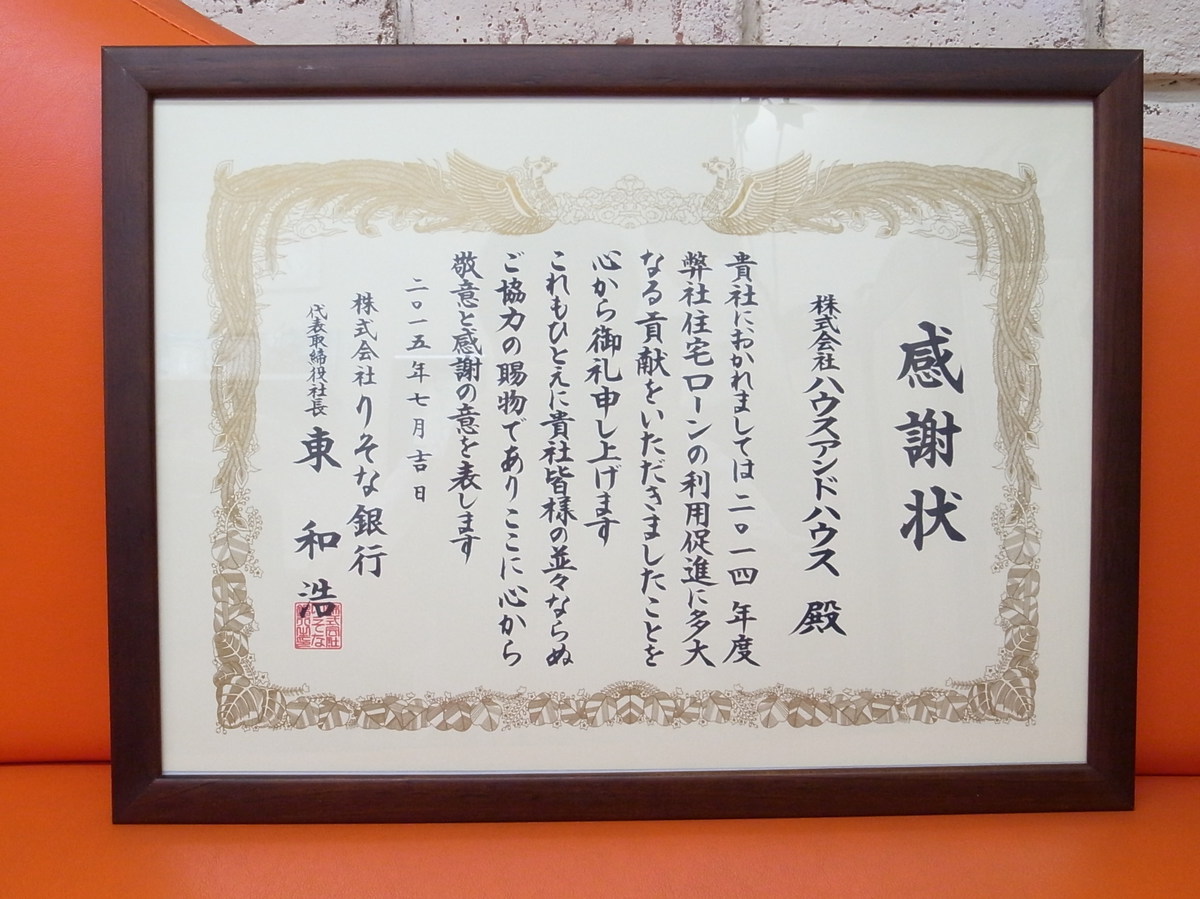 感謝状
株式会社ハウスアンドハウス 殿
貴社におかれましては二〇一四年度
弊社住宅ローンの利用促進に多大
なる貢献をいただきましたことを
心から御礼申し上げます
これもひとえに貴社皆様の並々ならぬ
ご協力の賜物でありここに心から
敬意と感謝の意を表します
二〇一五年七月吉日
株式会社りそな銀行
代表取締役社長 東 和浩